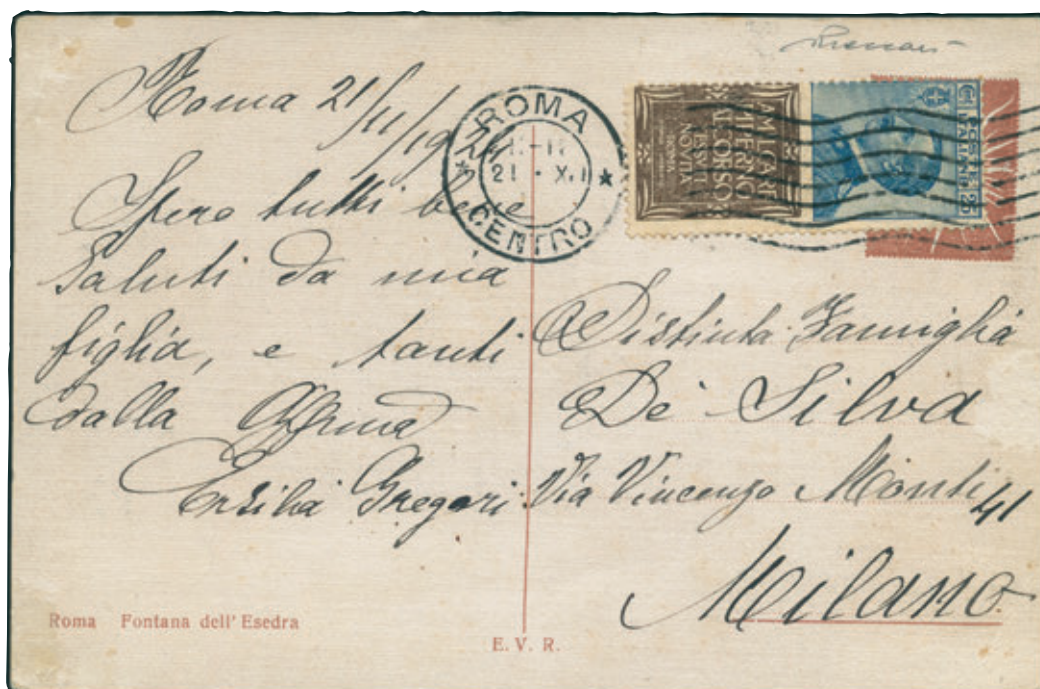 Roma 21/11/1924
Spero tutti bene
Saluti da mia
figlia, e tanti
dalla Affma
Ersilia Gregori
ROMA
CENTRO
21 · XI
AMILCARE
PIPERNO
AL CORSO
NOVITÀ
ROMA
POSTE
ITALIANE
25
Distinta Famiglia
De Silva
Via Vincenzo Monti 41
Milano
Roma Fontana dell'Esedra
E. V. R.